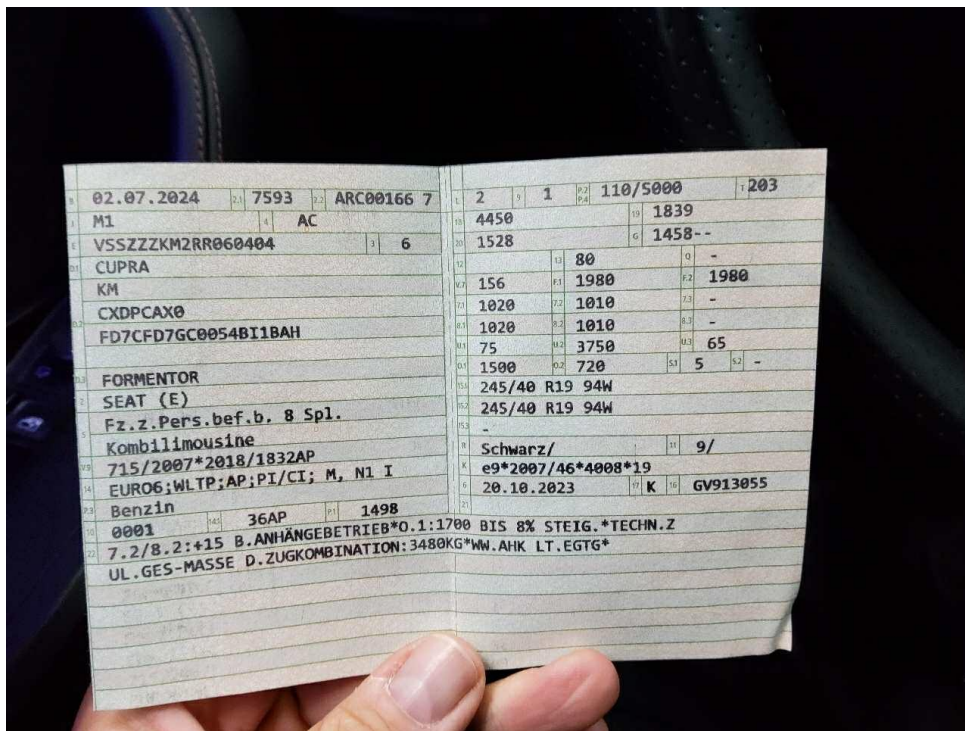 B 02.07.2024 2.1 7593 2.2 ARC00166 7
J M1 4 AC
E VSSZZZKM2RR060404 3 6
D.1 CUPRA
KM
D.2 CXDPCAX0
FD7CFD7GC0054BI1BAH
D.3 FORMENTOR
2 SEAT (E)
5 Fz.z.Pers.bef.b. 8 Spl.
Kombilimousine
V.9 715/2007*2018/1832AP
14 EURO6;WLTP;AP;PI/CI; M, N1 I
P.3 Benzin
10 0001 14.1 36AP P.1 1498
22 7.2/8.2:+15 B.ANHÄNGEBETRIEB*O.1:1700 BIS 8% STEIG.*TECHN.Z
UL.GES-MASSE D.ZUGKOMBINATION:3480KG*WW.AHK LT.EGTG*
L 2 9 1 P.2 P.4 110/5000 T 203
18 4450 19 1839
20 1528 G 1458--
12 13 80 Q -
V.7 156 F.1 1980 F.2 1980
7.1 1020 7.2 1010 7.3 -
8.1 1020 8.2 1010 8.3 -
U.1 75 U.2 3750 U.3 65
O.1 1500 O.2 720 S.1 5 S.2 -
15.1 245/40 R19 94W
15.2 245/40 R19 94W
15.3 -
R Schwarz/ 11 9/
K e9*2007/46*4008*19
6 20.10.2023 17 K 16 GV913055
21